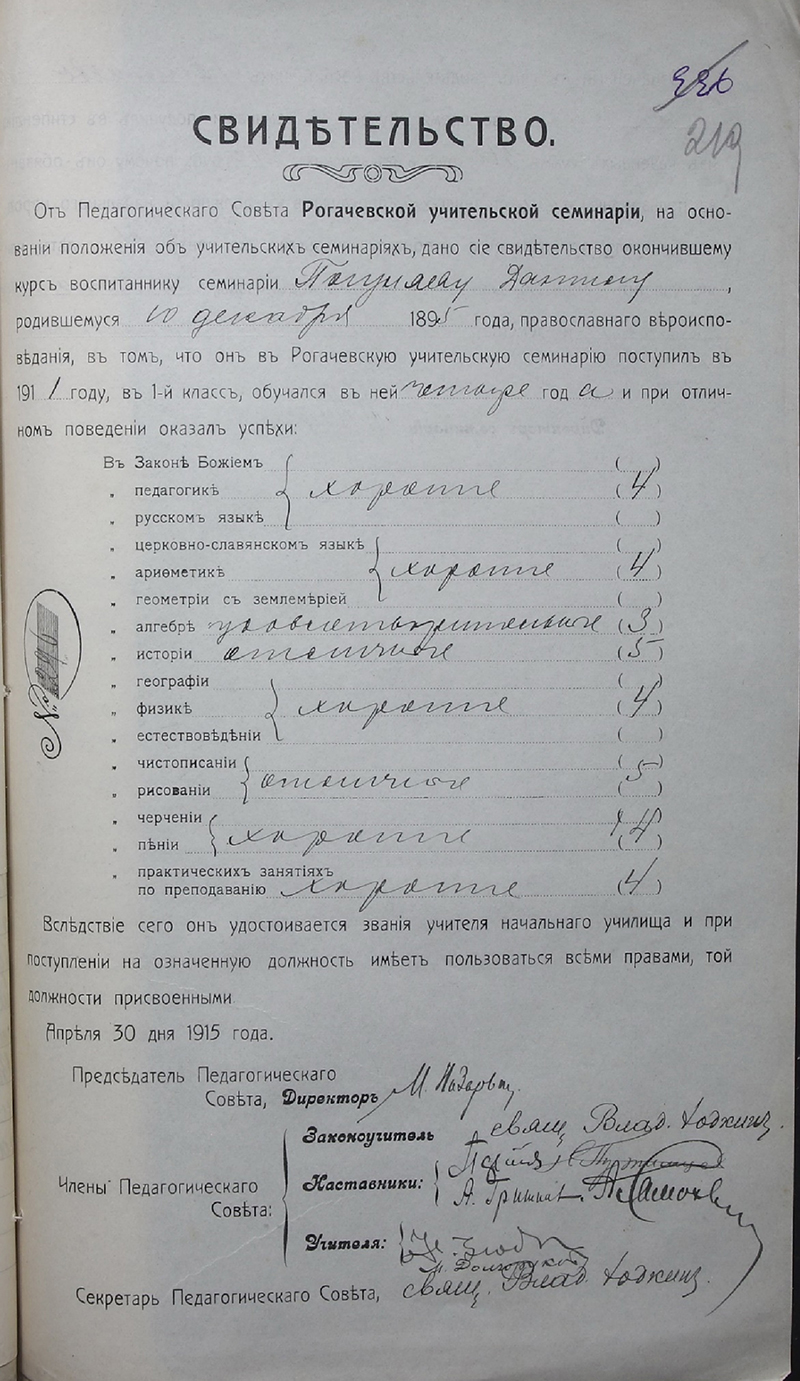 336
219
СВИДѢТЕЛЬСТВО.
Отъ Педагогическаго Совѣта Рогачевской учительской семинаріи, на осно-
ваніи положенія объ учительскихъ семинаріяхъ, дано сіе свидѣтельство окончившему
курсъ воспитаннику семинаріи
родившемуся 10 декабря 1895 года, православнаго вѣроиспо-
вѣданія, въ томъ, что онъ въ Рогачевскую учительскую семинарію поступилъ въ
1911 году, въ 1-й классъ, обучался въ ней четыре года и при отлич-
номъ поведеніи оказалъ успѣхи:
Въ Законѣ Божіемъ ( )
„ педагогикѣ хорошіе (4)
„ русскомъ языкѣ ( )
„ церковно-славянскомъ языкѣ ( )
„ ариѳметикѣ хорошіе (4)
„ геометріи съ землемѣріей ( )
„ алгебрѣ удовлетворительные (3)
„ исторіи отличные (5)
„ географіи ( )
„ физикѣ хорошіе (4)
„ естествовѣдѣніи ( )
„ чистописаніи (5)
„ рисованіи отличные ( )
„ черченіи ( )
„ пѣніи хорошіе (4)
„ практическихъ занятіяхъ
по преподаванію хорошіе (4)
№
Вслѣдствіе сего онъ удостоивается званія учителя начальнаго училища и при
поступленіи на означенную должность имѣетъ пользоваться всѣми правами, той
должности присвоенными.
Апрѣля 30 дня 1915 года.
Предсѣдатель Педагогическаго
Совѣта, Директоръ М.
Законоучитель свящ. Влад. Ходкинъ.
Члены Педагогическаго
Совѣта:
Наставники: А.
Учителя:
Секретарь Педагогическаго Совѣта, свящ. Влад. Ходкинъ.